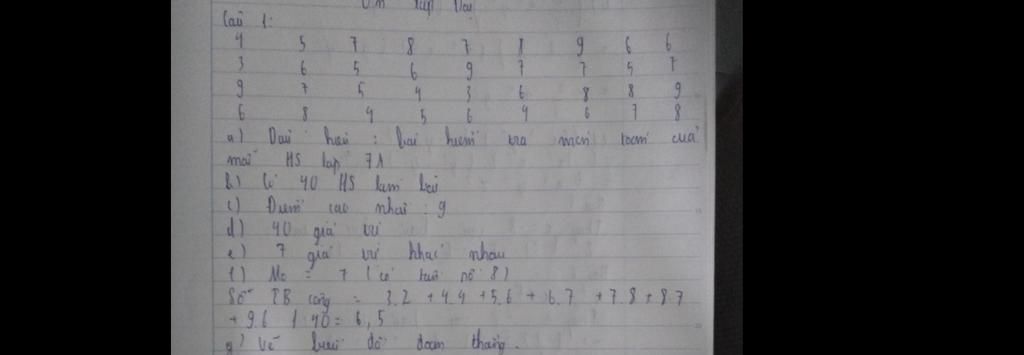 Ôn tập Đại
Câu 1:
4 5 7 8 7 8 9 6 6
3 6 5 6 9 7 7 5 7
9 7 5 4 3 6 8 8 9
6 8 4 5 6 4 6 7 8
a) Dấu hiệu : bài kiểm tra môn toán của
mỗi HS lớp 7A
b) Có 40 HS làm bài
c) Điểm cao nhất : 9
d) 40 giá trị
e) 7 giá trị khác nhau
f) Mo = 7 (có tần số 8)
Số TB cộng = 3.2 + 4.4 + 5.6 + 6.7 + 7.8 + 8.7
+ 9.6 / 40 = 6,5
g) Vẽ biểu đồ đoạn thẳng.